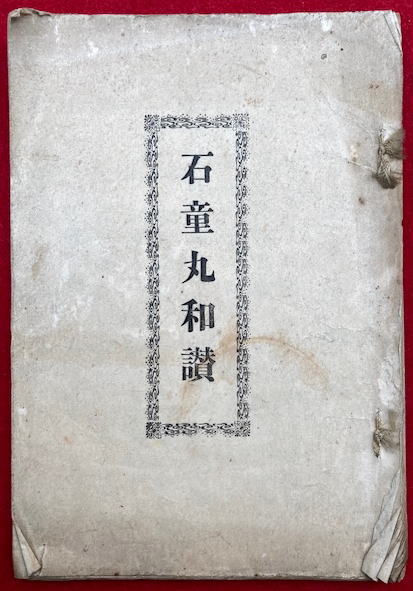 石童丸和讃